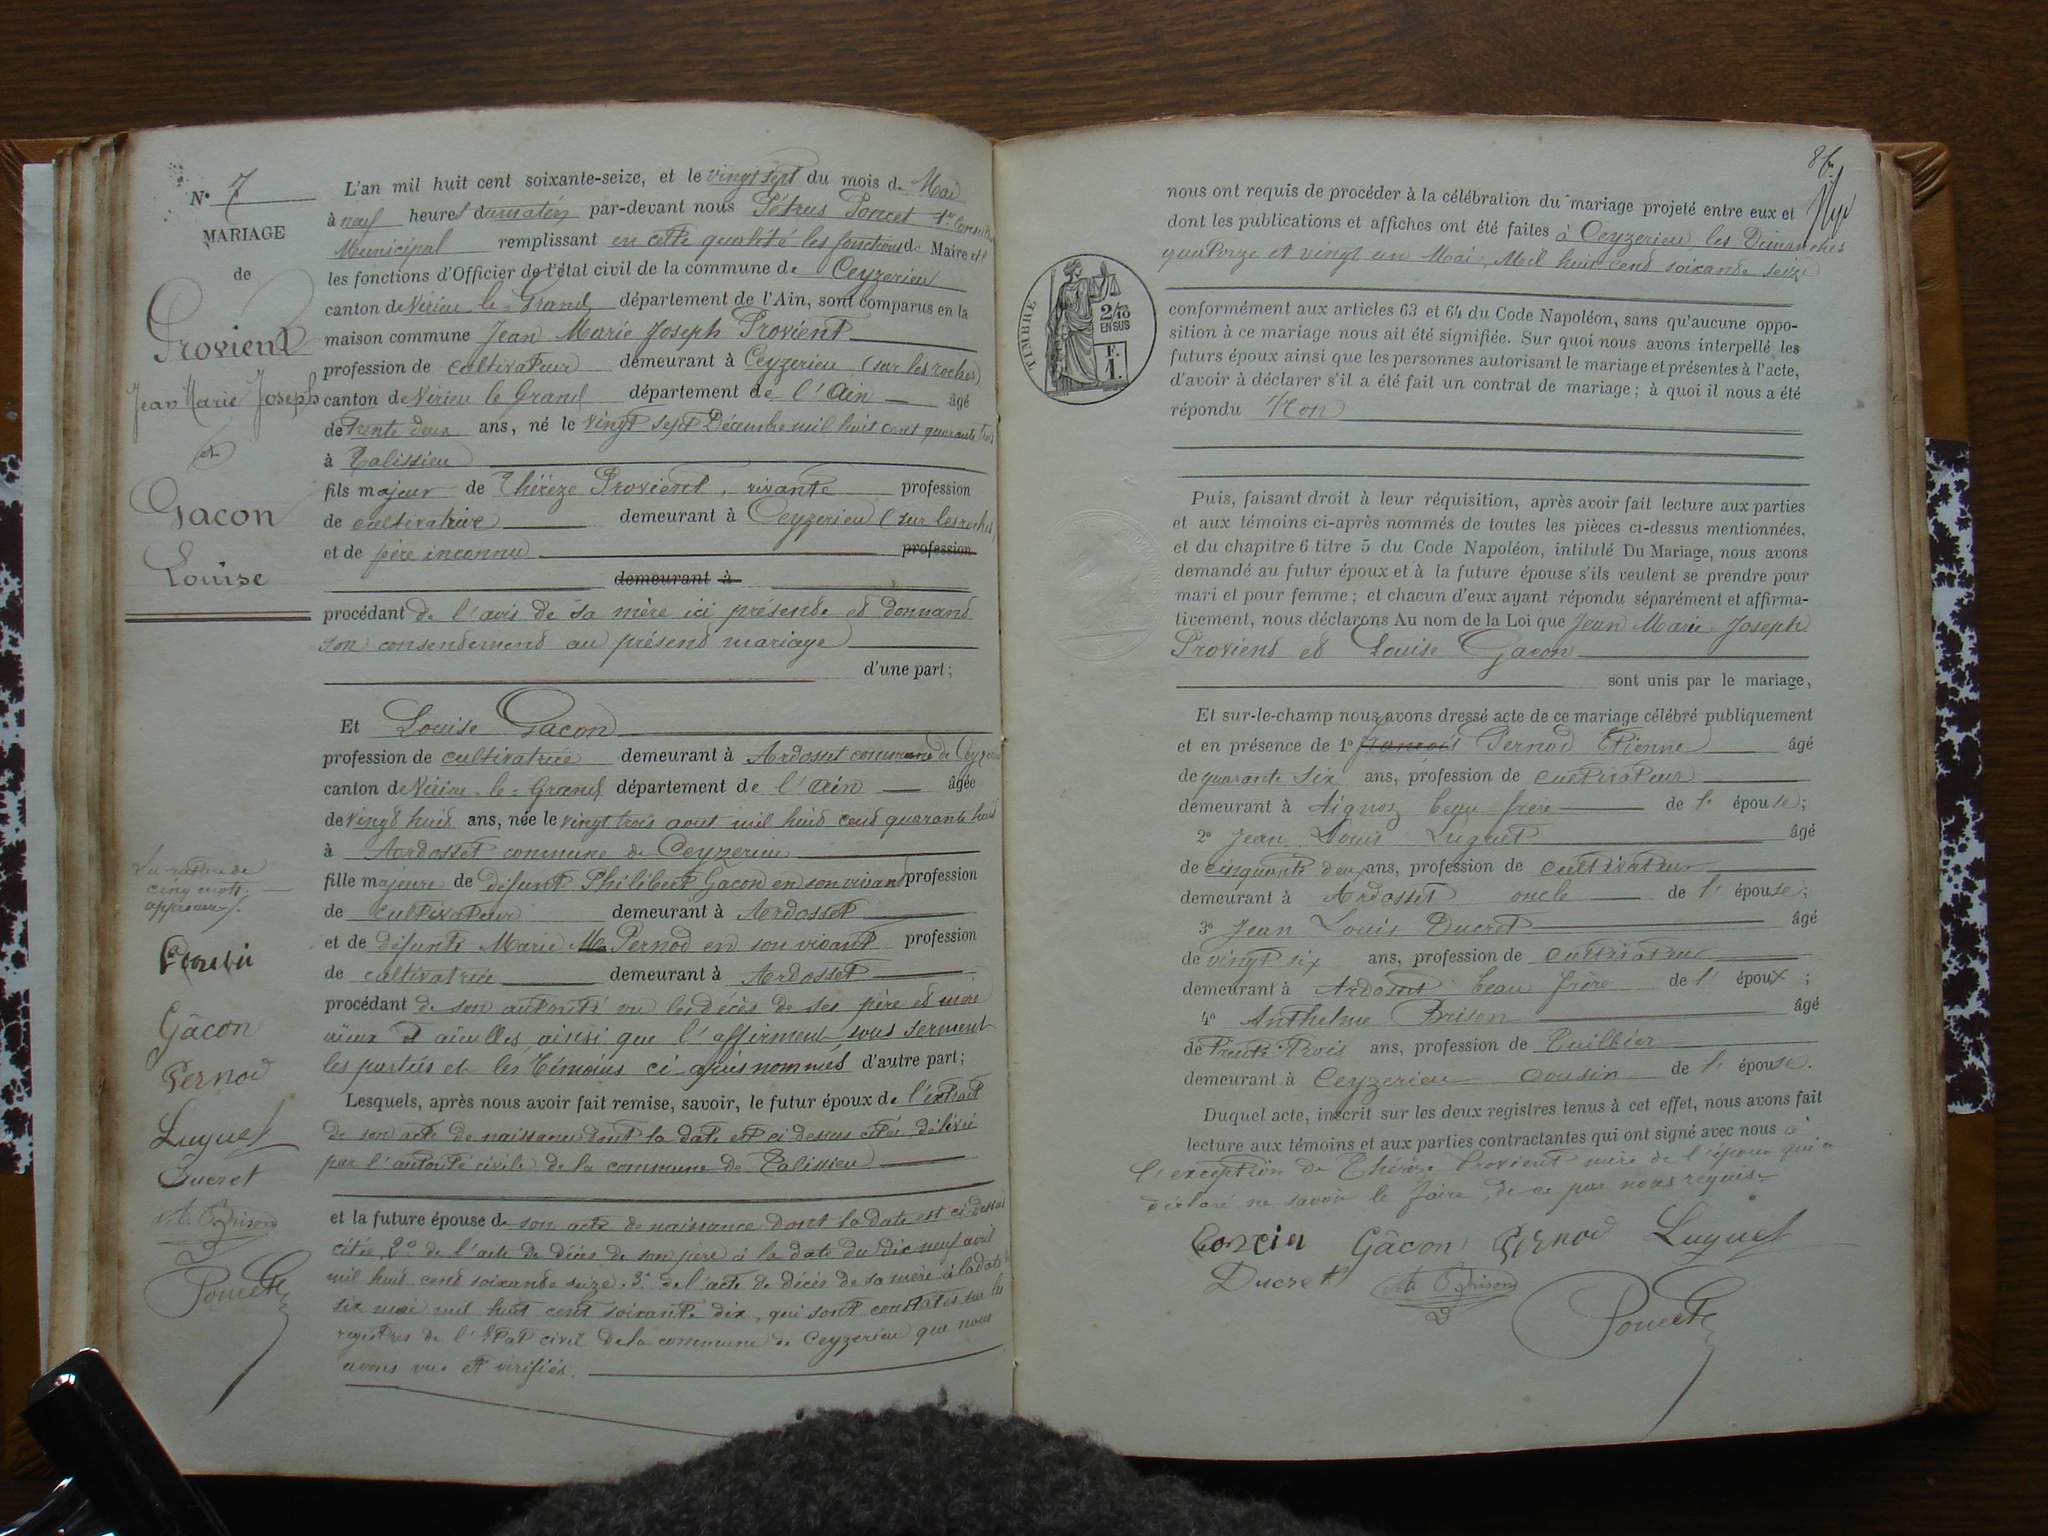 N° 7
MARIAGE
de
Provient
Jean Marie Joseph
et
Gacon
Louise
La rature de
cinq mots
approuvés.
Gâcon
Pernod
Luquet
Ducret
A Brison
Poncet
L'an mil huit cent soixante-seize, et le vingt sept du mois de Mai
à neuf heures du matin par-devant nous Pétrus Poncet 1er Conseiller
Municipal remplissant en cette qualité les fonctions de Maire et
les fonctions d'Officier de l'état civil de la commune de Ceyzerieu
canton de Virieu-le-Grand département de l'Ain, sont comparus en la
maison commune Jean Marie Joseph Provient
profession de cultivateur demeurant à Ceyzerieu (sur les roches)
canton de Virieu le Grand département de l'Ain âgé
de trente deux ans, né le vingt sept Décembre mil huit cent quarante trois
à Talissieu
fils majeur de Thérèze Provient, vivante profession
de cultivatrice demeurant à Ceyzerieu (sur les roches)
et de père inconnu profession
demeurant à
procédant de l'avis de sa mère ici présende ed donnand
son consendemend au présend mariage
d'une part;
Et Louise Gacon
profession de cultivatrice demeurant à Ardosset commune de Ceyzerieu
canton de Virieu-le-Grand département de l'Ain âgée
de vingd huid ans, née le vingt trois aout mil huid cend quarante huid
à Ardosset commune de Ceyzerieu
fille majeure de défunt Philibert Gacon en son vivant profession
de cultivateur demeurant à Ardosset
et de défunte Marie Ma Pernod en son vivant profession
de cultivatrice demeurant à Ardosset
procédant de son autorité vu les décès de ses père ed mère
aïeux et aïeulles, ainsi que l'affirment, sous serment
les parties et les témoins ci-après nommés d'autre part;
Lesquels, après nous avoir fait remise, savoir, le futur époux de l'extrait
de son acte de naissance dont la date est ci dessus citée, délivré
par l'autorité civile de la commune de Talissieu
et la future épouse de son acte de naissance dont la date est ci-dessus
citée, 2° de l'acte de décès de son père à la date du dix neuf avril
mil huid cend soixande seize. 3° de l'acte de décès de sa mère à la date du
six mai mil huit cent soixante dix, qui sont constatés sur les
registres de l'Etat civil de la commune de Ceyzerieu que nous
avons vus et vérifiés.
86
nous ont requis de procéder à la célébration du mariage projeté entre eux et
dont les publications et affiches ont été faites à Ceyzerieu les Dimanches
quatorze et vingt un Mai, Mil huit cend soixande seize
TIMBRE
2/10
EN SUS
F.
1.
conformément aux articles 63 et 64 du Code Napoléon, sans qu'aucune oppo-
sition à ce mariage nous ait été signifiée. Sur quoi nous avons interpellé les
futurs époux ainsi que les personnes autorisant le mariage et présentes à l'acte,
d'avoir à déclarer s'il a été fait un contrat de mariage; à quoi il nous a été
répondu Non
Puis, faisant droit à leur réquisition, après avoir fait lecture aux parties
et aux témoins ci-après nommés de toutes les pièces ci-dessus mentionnées,
et du chapitre 6 titre 5 du Code Napoléon, intitulé Du Mariage, nous avons
demandé au futur époux et à la future épouse s'ils veulent se prendre pour
mari et pour femme; et chacun d'eux ayant répondu séparément et affirma-
tivement, nous déclarons Au nom de la Loi que Jean Marie Joseph
Proviend ed Louise Gacon
sont unis par le mariage,
Et sur-le-champ nous avons dressé acte de ce mariage célébré publiquement
et en présence de 1° françois Pernod Etienne âgé
de quarante six ans, profession de cultivateur
demeurant à Aignoz beau frère de l'épouse;
2° Jean Louis Luquet âgé
de cinquante deux ans, profession de cultivateur
demeurant à Ardosset oncle de l'épouse;
3° Jean Louis Ducret âgé
de vingt six ans, profession de cultivateur
demeurant à Ardosset beau frère de l'époux;
4° Anthelme Brison âgé
de trente-trois ans, profession de tuillier
demeurant à Ceyzerieu cousin de l'épouse.
Duquel acte, inscrit sur les deux registres tenus à cet effet, nous avons fait
lecture aux témoins et aux parties contractantes qui ont signé avec nous à
l'exception de Thérèze Provient mère de l'époux qui a
déclaré ne savoir le faire, de ce par nous requis.
Gâcon Pernod Luquet
Ducret A Brison Poncet